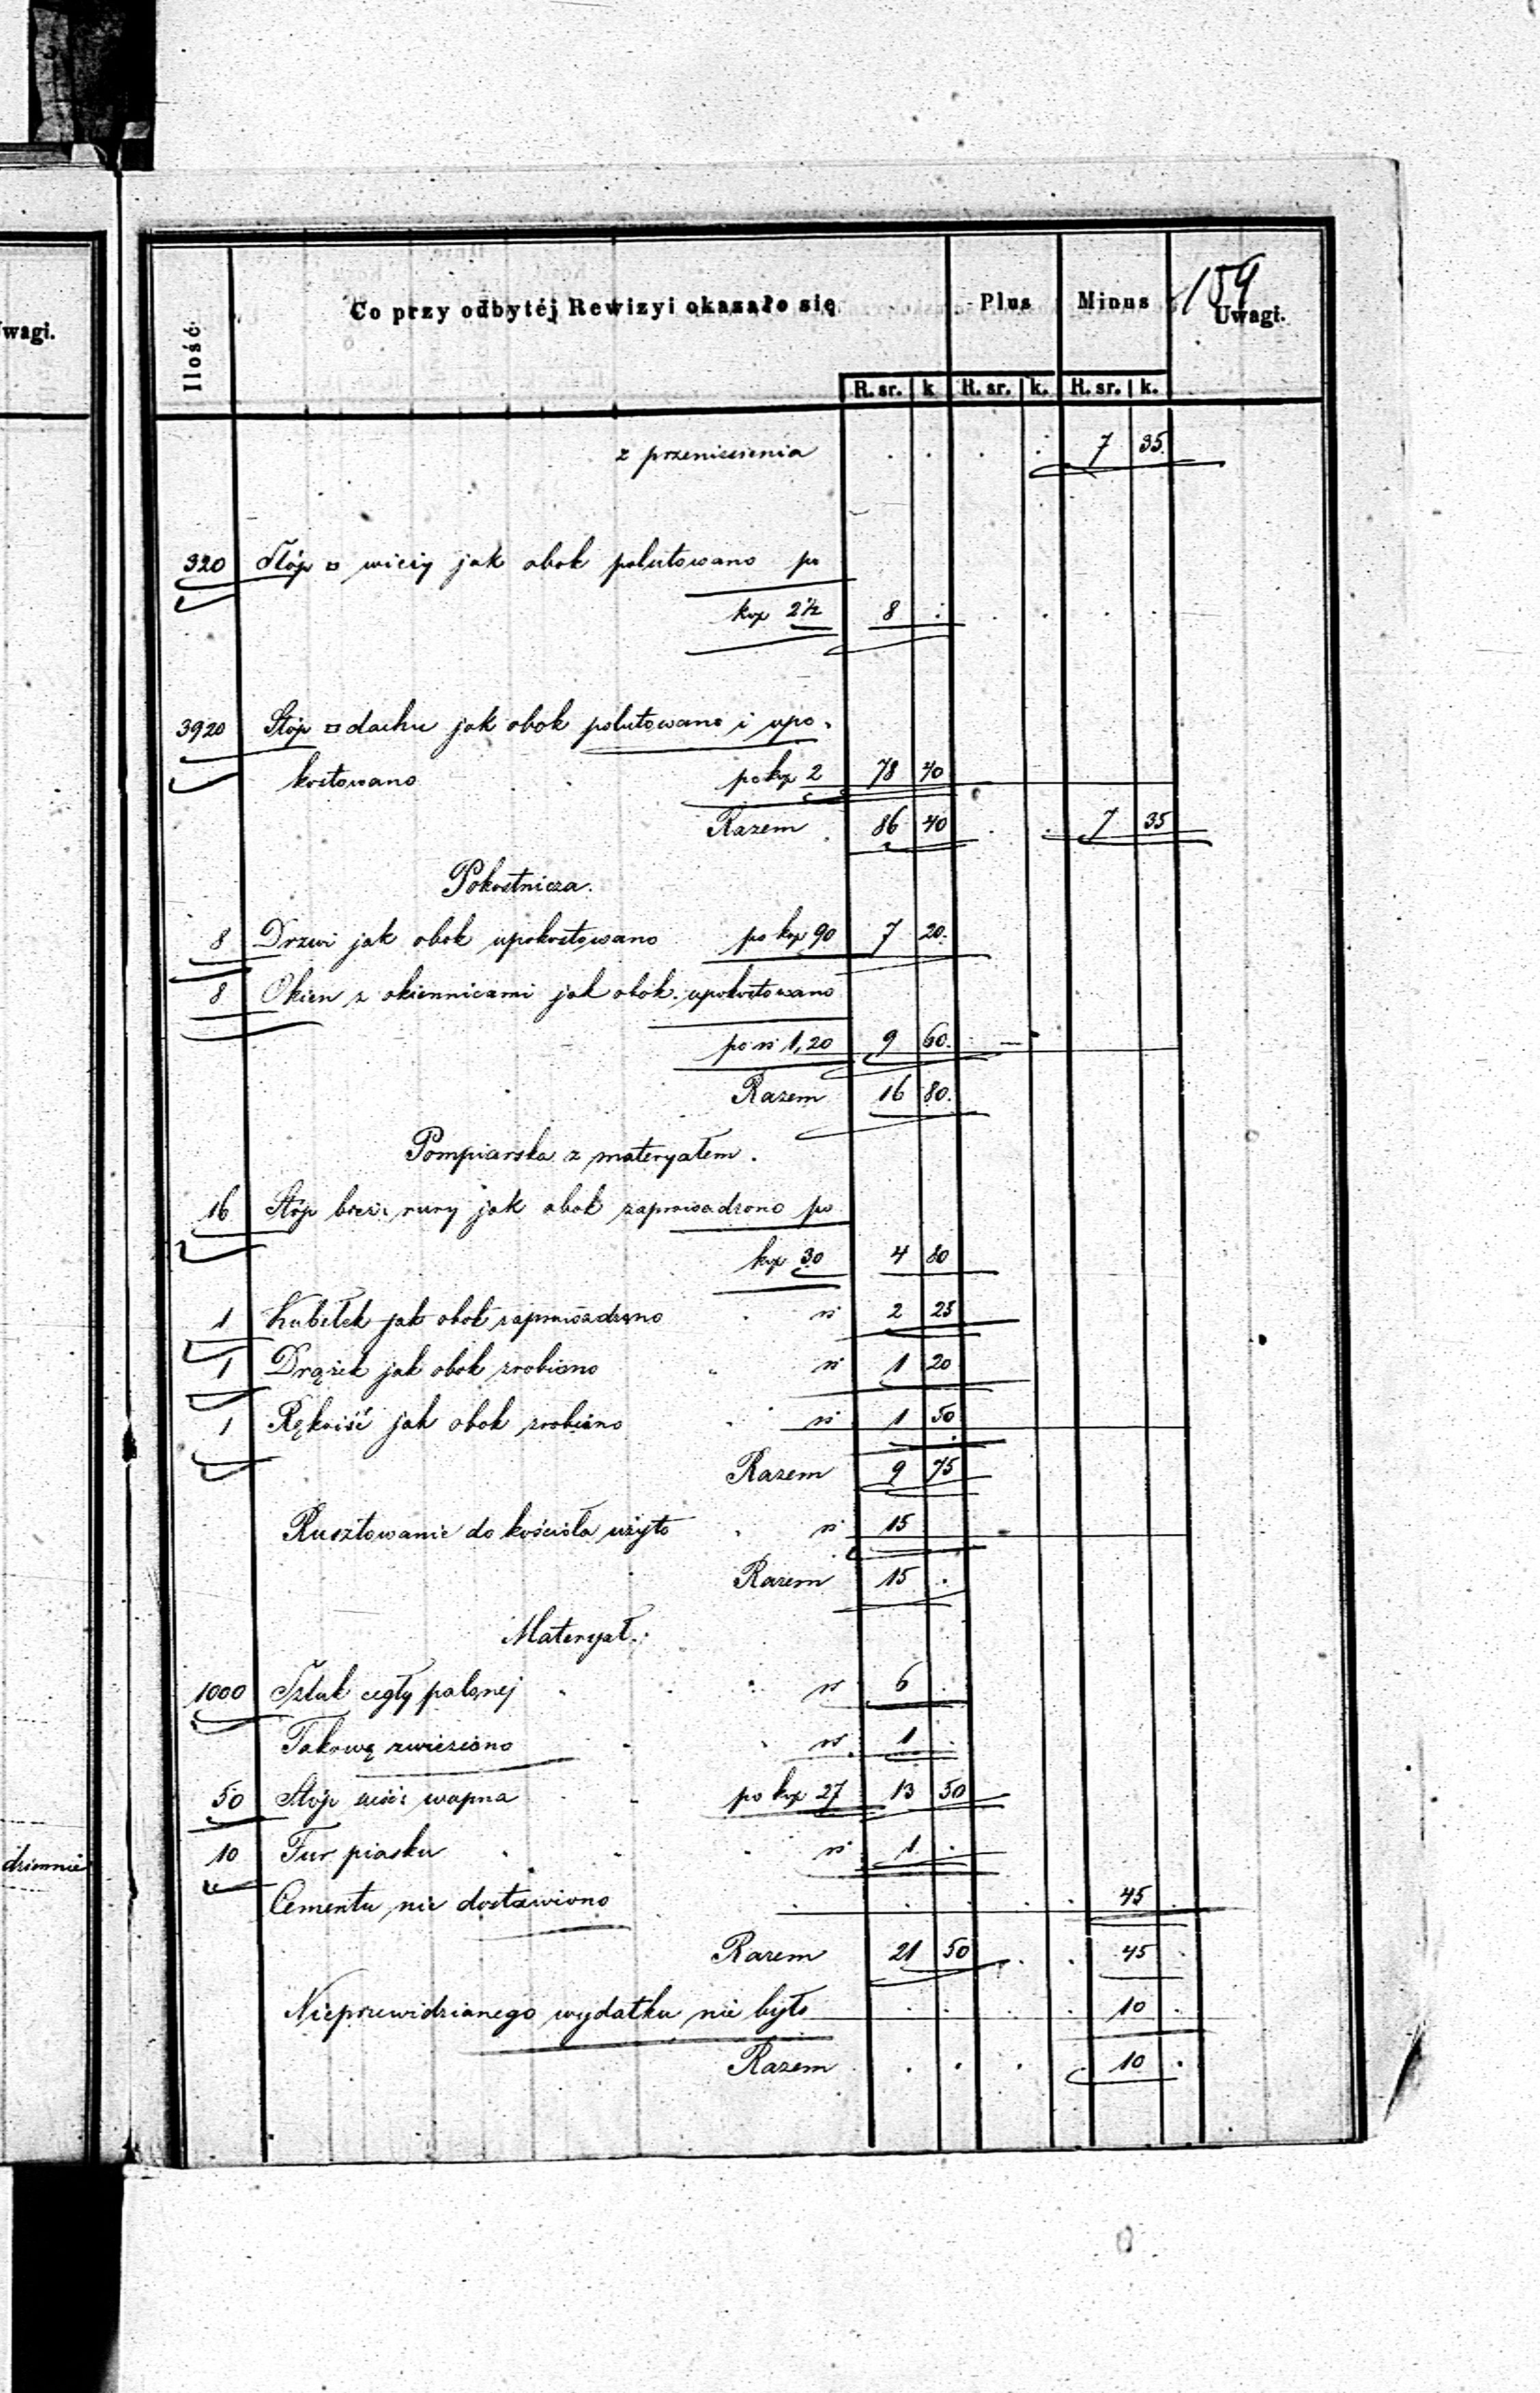 159
wagi.
Ilość
Co przy odbytéj Rewizyi okazało się
Plus
Minus
Uwagi.
R. sr. k R. sr. k. R. sr. k.
z przeniesienia . . . : 7 35.
320 Stóp □ wieży jak obok polutowano po
kop 2½ 8 : . . . .
3920 Stóp □ dachu jak obok polutowano i upo-
kostowano po kop 2 78 40
Razem . 86 40 . . 7 35
Pokostnicza.
8 Drzwi jak obok upokostowano po kop 90 7 20.
8 Okien z okiennicami jak obok upokostowano
po rs 1,20 9 60.
Razem 16 80.
Pompiarska z materyałem.
16 Stóp bież: rury jak obok zaprowadzono po
kop 30 4 80
1 Kubełek jak obok zaprowadzono . rs 2 25
1 Drążek jak obok zrobiono . rs 1 20
1 Rękojść jak obok zrobiono . rs 1 50
Razem 9 75
Rusztowanie do kościoła użyto . rs 15
Razem 15 .
Materyał:
1000 Sztuk cegły palonej . . . rs 6 .
Takową zwieziono . . rs 1 .
50 Stóp sześć: wapna . . po kop 27 13 50
10 Fur piasku . . . rs 1 .
dziennie
Cementu nie dostawiono . . . . . 45 .
Razem 21 50 . . 45 .
Nieprzewidzianego wydatku nie było . . . . 10 .
Razem . . . 10 .